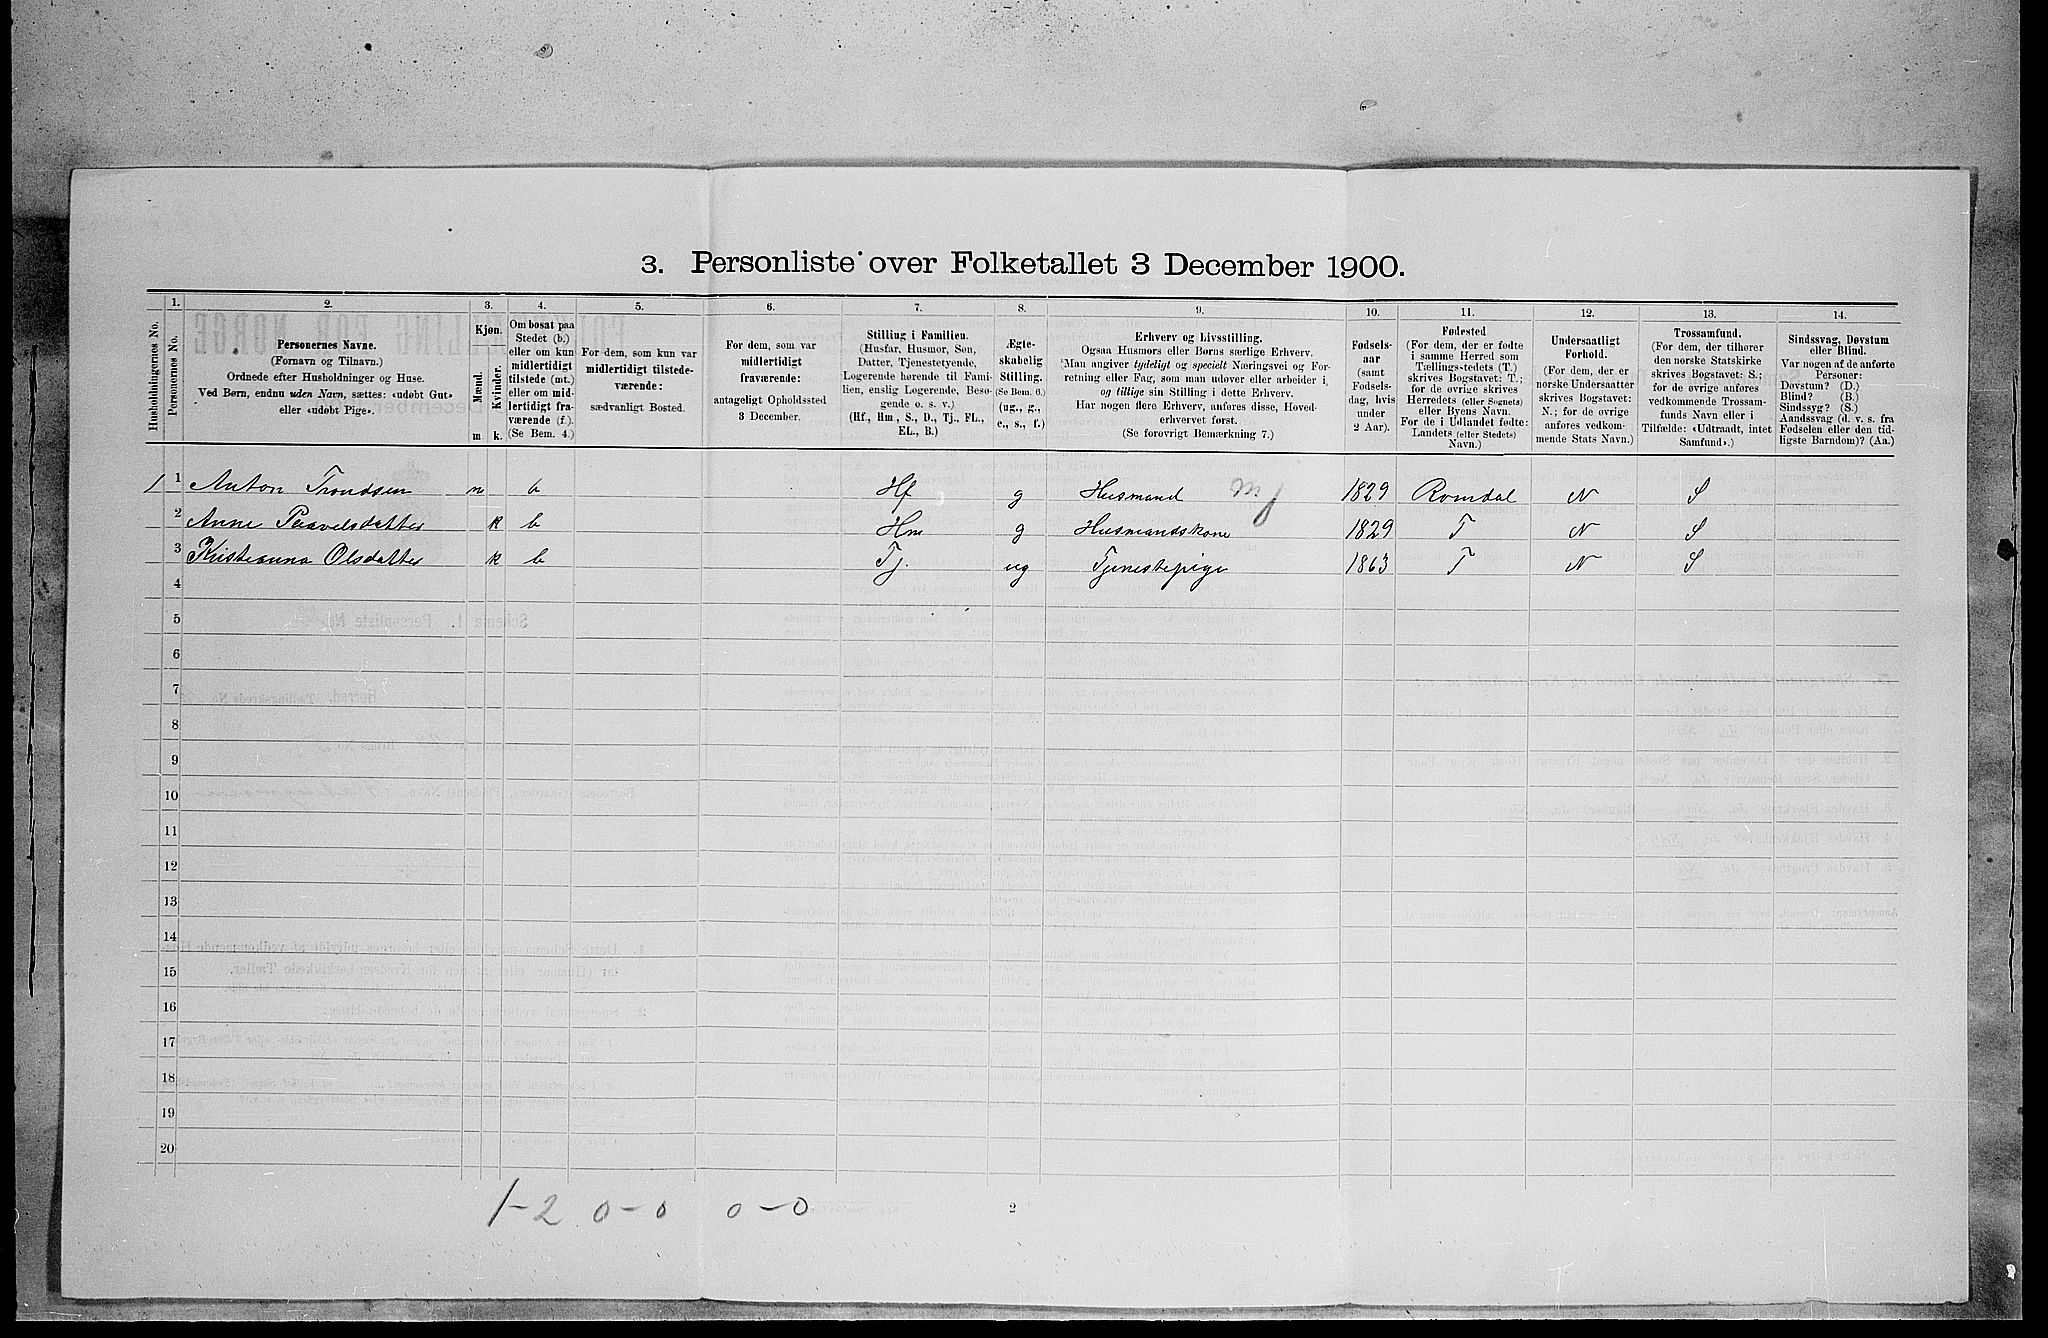 3. Personliste over Folketallet 3 December 1900.
Husholdningernes No.
1.
Personernes No.
2.
Personernes Navne.
(Fornavn og Tilnavn.)
Ordnede efter Husholdninger og Huse.
Ved Børn, endnu uden Navn, sættes: «udøbt Gut»
eller «udøbt Pige».
3.
Kjøn.
Mænd.
Kvinder.
m
k.
4.
Om bosat paa
Stedet (b.)
eller om kun
midlertidigt
tilstede (mt.)
eller om mid-
lertidigt fra-
værende (f.).
(Se Bem. 4.)
5.
For dem, som kun var
midlertidigt tilstede-
værende:
sædvanligt Bosted.
6.
For dem, som var
midlertidigt
fraværende:
antageligt Opholdssted
3 December.
7.
Stilling i Familien.
(Husfar, Husmor, Søn,
Datter, Tjenestetyende,
Logerende hørende til Fami-
lien, enslig Logerende, Besø-
gende o. s. v.)
(Hf., Hm., S., D., Tj., FL.,
EL., B.)
8.
Ægte-
skabelig
Stilling.
(Se Bem. 6.)
(ug., g.,
e., s., f.)
9.
Erhverv og Livsstilling.
Ogsaa Husmors eller Børns særlige Erhverv.
Man angiver tydeligt og specielt Næringsvei og For-
retning eller Fag, som man udøver eller arbeider i,
og tillige sin Stilling i dette Erhverv.
Har nogen flere Erhverv, anføres disse, Hoved-
erhvervet først.
(Se forøvrigt Bemærkning 7.)
10.
Fødsels-
aar
(samt
Fødsels-
dag, hvis
under
2 Aar).
11.
Fødested
(For dem, der er fødte
i samme Herred som
Tællings-stedets (T.)
skrives Bogstavet: T.;
for de øvrige skrives
Herredets (eller Sognets)
eller Byens Navn.
For de i Udlandet fødte:
Landets (eller Stedets)
Navn.)
12.
Undersaatligt
Forhold.
(For dem, der er
norske Undersaatter
skrives Bogstavet:
N.; for de øvrige
anføres vedkom-
mende Stats Navn.)
13.
Trossamfund.
(For dem, der tilhører
den norske Statskirke
skrives Bogstavet: S.;
for de øvrige anføres
vedkommende Trossam-
funds Navn eller i
Tilfælde: «Udtraadt, intet
Samfund».)
14.
Sindssvag, Døvstum
eller Blind.
Var nogen af de anførte
Personer:
Døvstum? (D.)
Blind? (B.)
Sindssyg? (S.)
Aandssvag (d. v. s. fra
Fødselen eller den tid-
ligste Barndom)? (Aa.)
1 1 Anton Trondsen m b Hf g Husmand 1829 Romdal N S
2 Anne Paavelsdatter k b Hm g Husmandskone 1829 T N S
3 Kristeanna Olsdatter k b Tj. ug Tjenestepige 1863 T N S
4
5
6
7
8
9
10
11
12
13
14
15
16
17
18
19
20
1-2 0-0 0-0
2